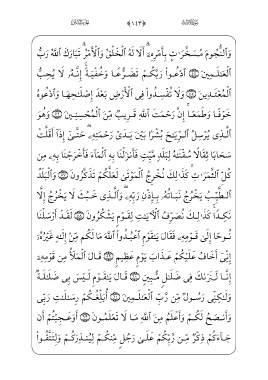 ﴿١٤٣﴾
وَٱلنُّجُومَ مُسَخَّرَٰتٍۭ بِأَمْرِهِۦٓ أَلَا لَهُ ٱلْخَلْقُ وَٱلْأَمْرُ تَبَارَكَ ٱللَّهُ رَبُّ
ٱلْعَٰلَمِينَ ادْعُوا۟ رَبَّكُمْ تَضَرُّعًا وَخُفْيَةً إِنَّهُۥ لَا يُحِبُّ
ٱلْمُعْتَدِينَ وَلَا تُفْسِدُوا۟ فِى ٱلْأَرْضِ بَعْدَ إِصْلَٰحِهَا وَٱدْعُوهُ
خَوْفًا وَطَمَعًا إِنَّ رَحْمَتَ ٱللَّهِ قَرِيبٌ مِّنَ ٱلْمُحْسِنِينَ وَهُوَ
ٱلَّذِى يُرْسِلُ ٱلرِّيَٰحَ بُشْرًۢا بَيْنَ يَدَىْ رَحْمَتِهِۦ حَتَّىٰٓ إِذَآ أَقَلَّتْ
سَحَابًا ثِقَالًا سُقْنَٰهُ لِبَلَدٍ مَّيِّتٍ فَأَنزَلْنَا بِهِ ٱلْمَآءَ فَأَخْرَجْنَا بِهِۦ مِن
كُلِّ ٱلثَّمَرَٰتِ كَذَٰلِكَ نُخْرِجُ ٱلْمَوْتَىٰ لَعَلَّكُمْ تَذَكَّرُونَ وَٱلْبَلَدُ
ٱلطَّيِّبُ يَخْرُجُ نَبَاتُهُۥ بِإِذْنِ رَبِّهِۦ وَٱلَّذِى خَبُثَ لَا يَخْرُجُ إِلَّا
نَكِدًا كَذَٰلِكَ نُصَرِّفُ ٱلْءَايَٰتِ لِقَوْمٍ يَشْكُرُونَ لَقَدْ أَرْسَلْنَا
نُوحًا إِلَىٰ قَوْمِهِۦ فَقَالَ يَٰقَوْمِ ٱعْبُدُوا۟ ٱللَّهَ مَا لَكُم مِّنْ إِلَٰهٍ غَيْرُهُۥٓ
إِنِّىٓ أَخَافُ عَلَيْكُمْ عَذَابَ يَوْمٍ عَظِيمٍ قَالَ ٱلْمَلَأُ مِن قَوْمِهِۦٓ
إِنَّا لَنَرَىٰكَ فِى ضَلَٰلٍ مُّبِينٍ قَالَ يَٰقَوْمِ لَيْسَ بِى ضَلَٰلَةٌ
وَلَٰكِنِّى رَسُولٌ مِّن رَّبِّ ٱلْعَٰلَمِينَ أُبَلِّغُكُمْ رِسَٰلَٰتِ رَبِّى
وَأَنصَحُ لَكُمْ وَأَعْلَمُ مِنَ ٱللَّهِ مَا لَا تَعْلَمُونَ أَوَعَجِبْتُمْ أَن
جَآءَكُمْ ذِكْرٌ مِّن رَّبِّكُمْ عَلَىٰ رَجُلٍ مِّنكُمْ لِيُنذِرَكُمْ وَلِتَتَّقُوا۟